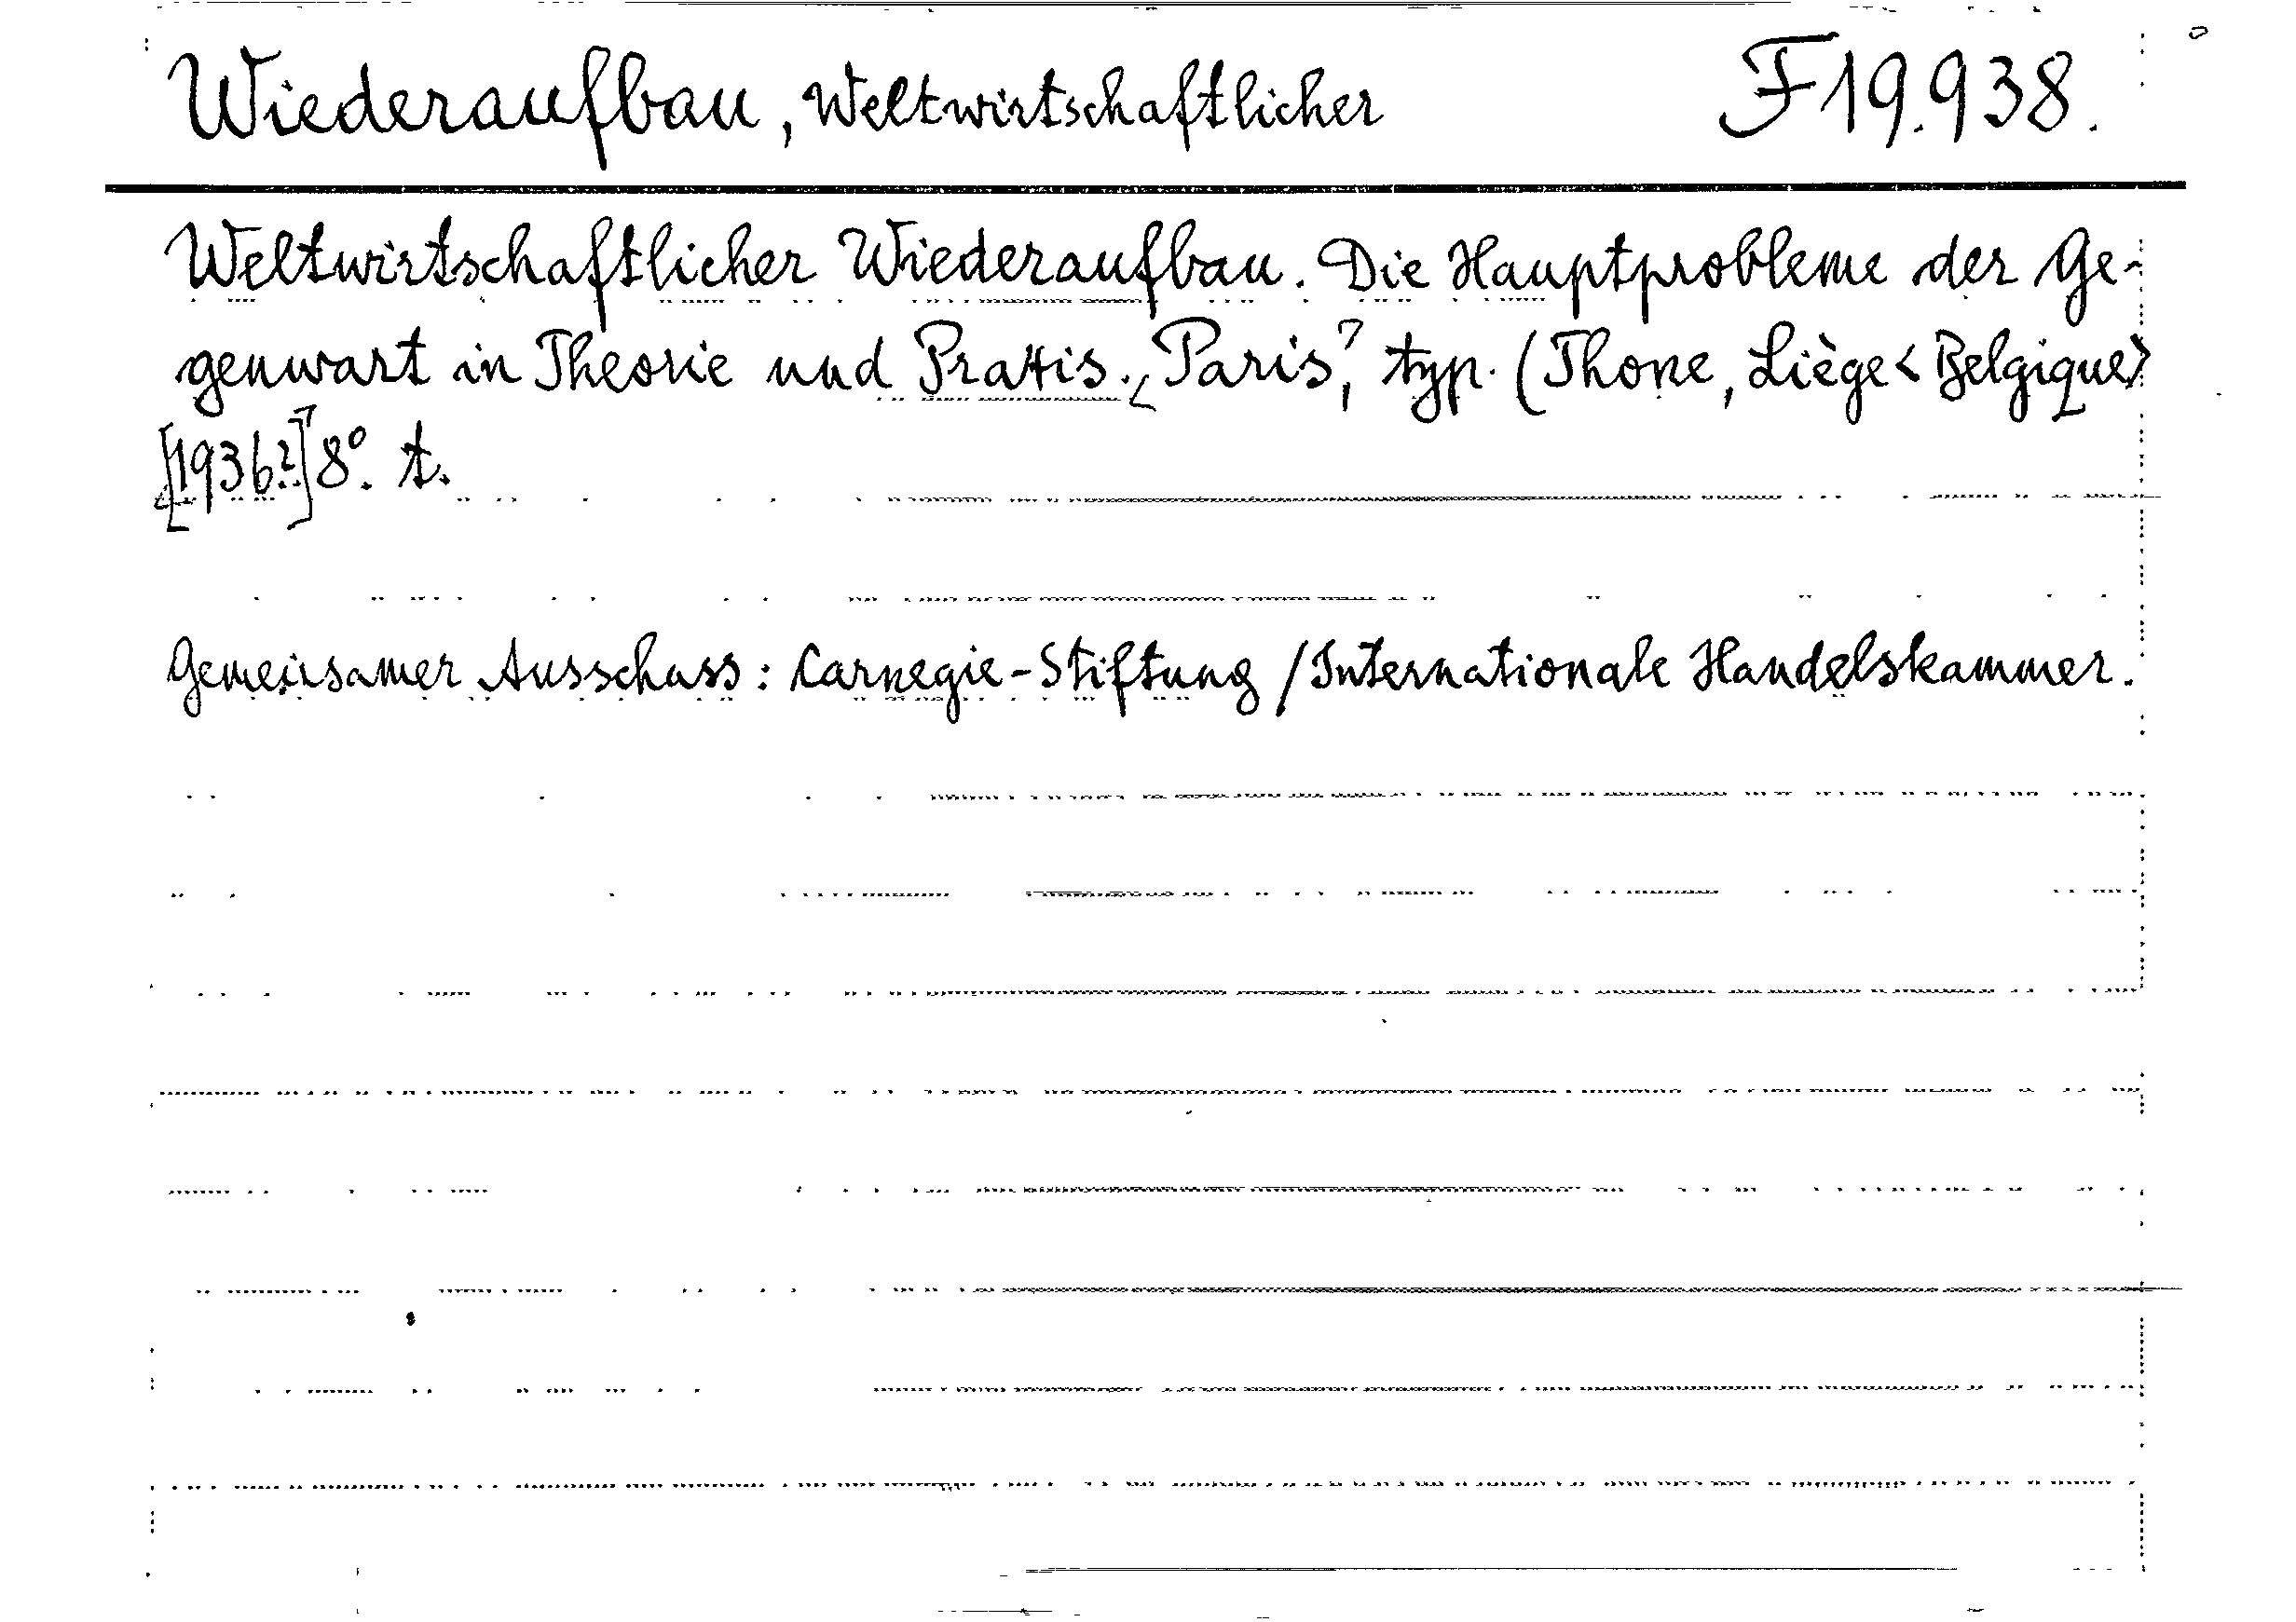 Wiederaufbau, Weltwirtschaftlicher F 19.938.
Weltwirtschaftlicher Wiederaufbau. Die Hauptprobleme der Ge-
genwart in Theorie und Praxis. [Paris], typ. (Thone, Liège <Belgique>
[1936?] 8°. t.
Gemeinsamer Ausschuss: Carnegie-Stiftung / Internationale Handelskammer.